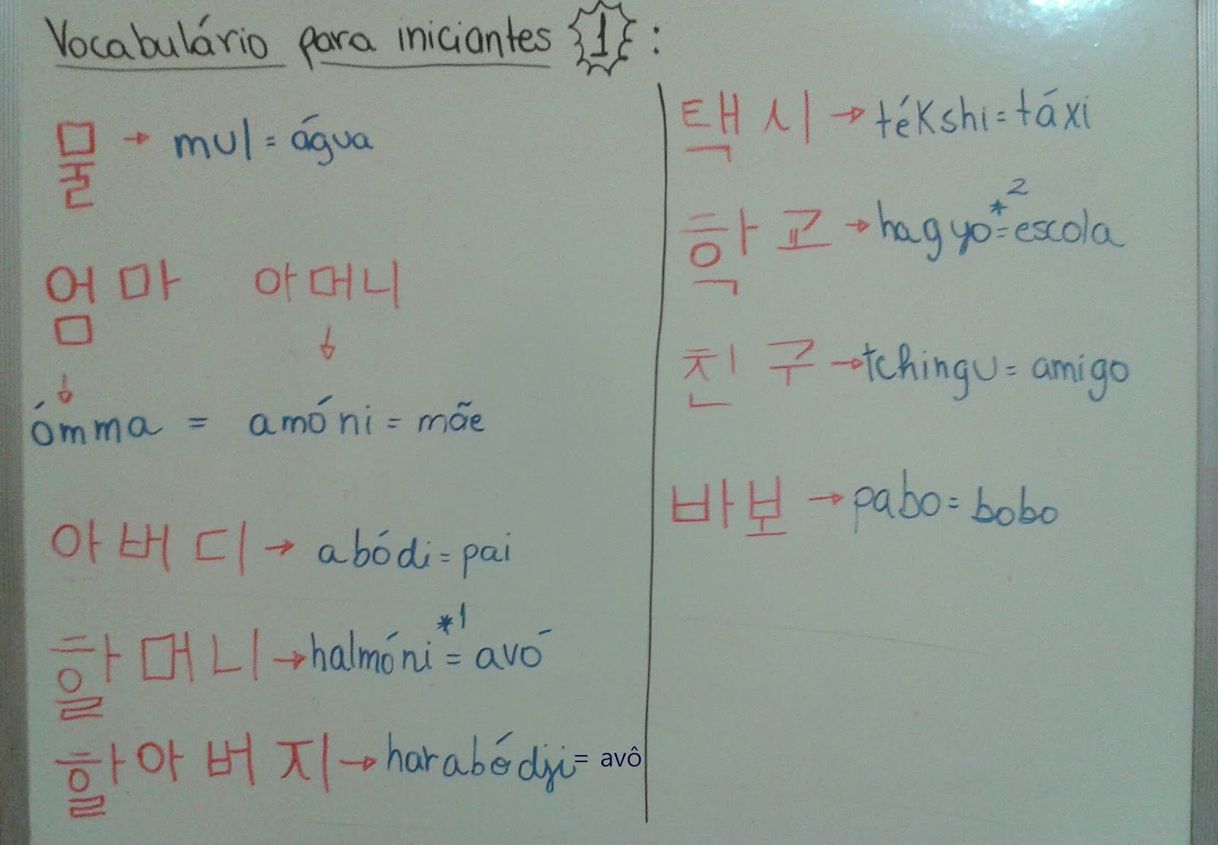 Vocabulário para iniciantes 1 :
물 → mul = água
엄마 아머니
↓ ↓
ómma = amóni = mãe
아버디 → abódi = pai
할머니 → halmóni *1 = avó
할아버지 → harabódji = avô
택시 → tékshi = táxi
학교 → hagyo *2 = escola
친구 → tchingu = amigo
바보 → pabo = bobo